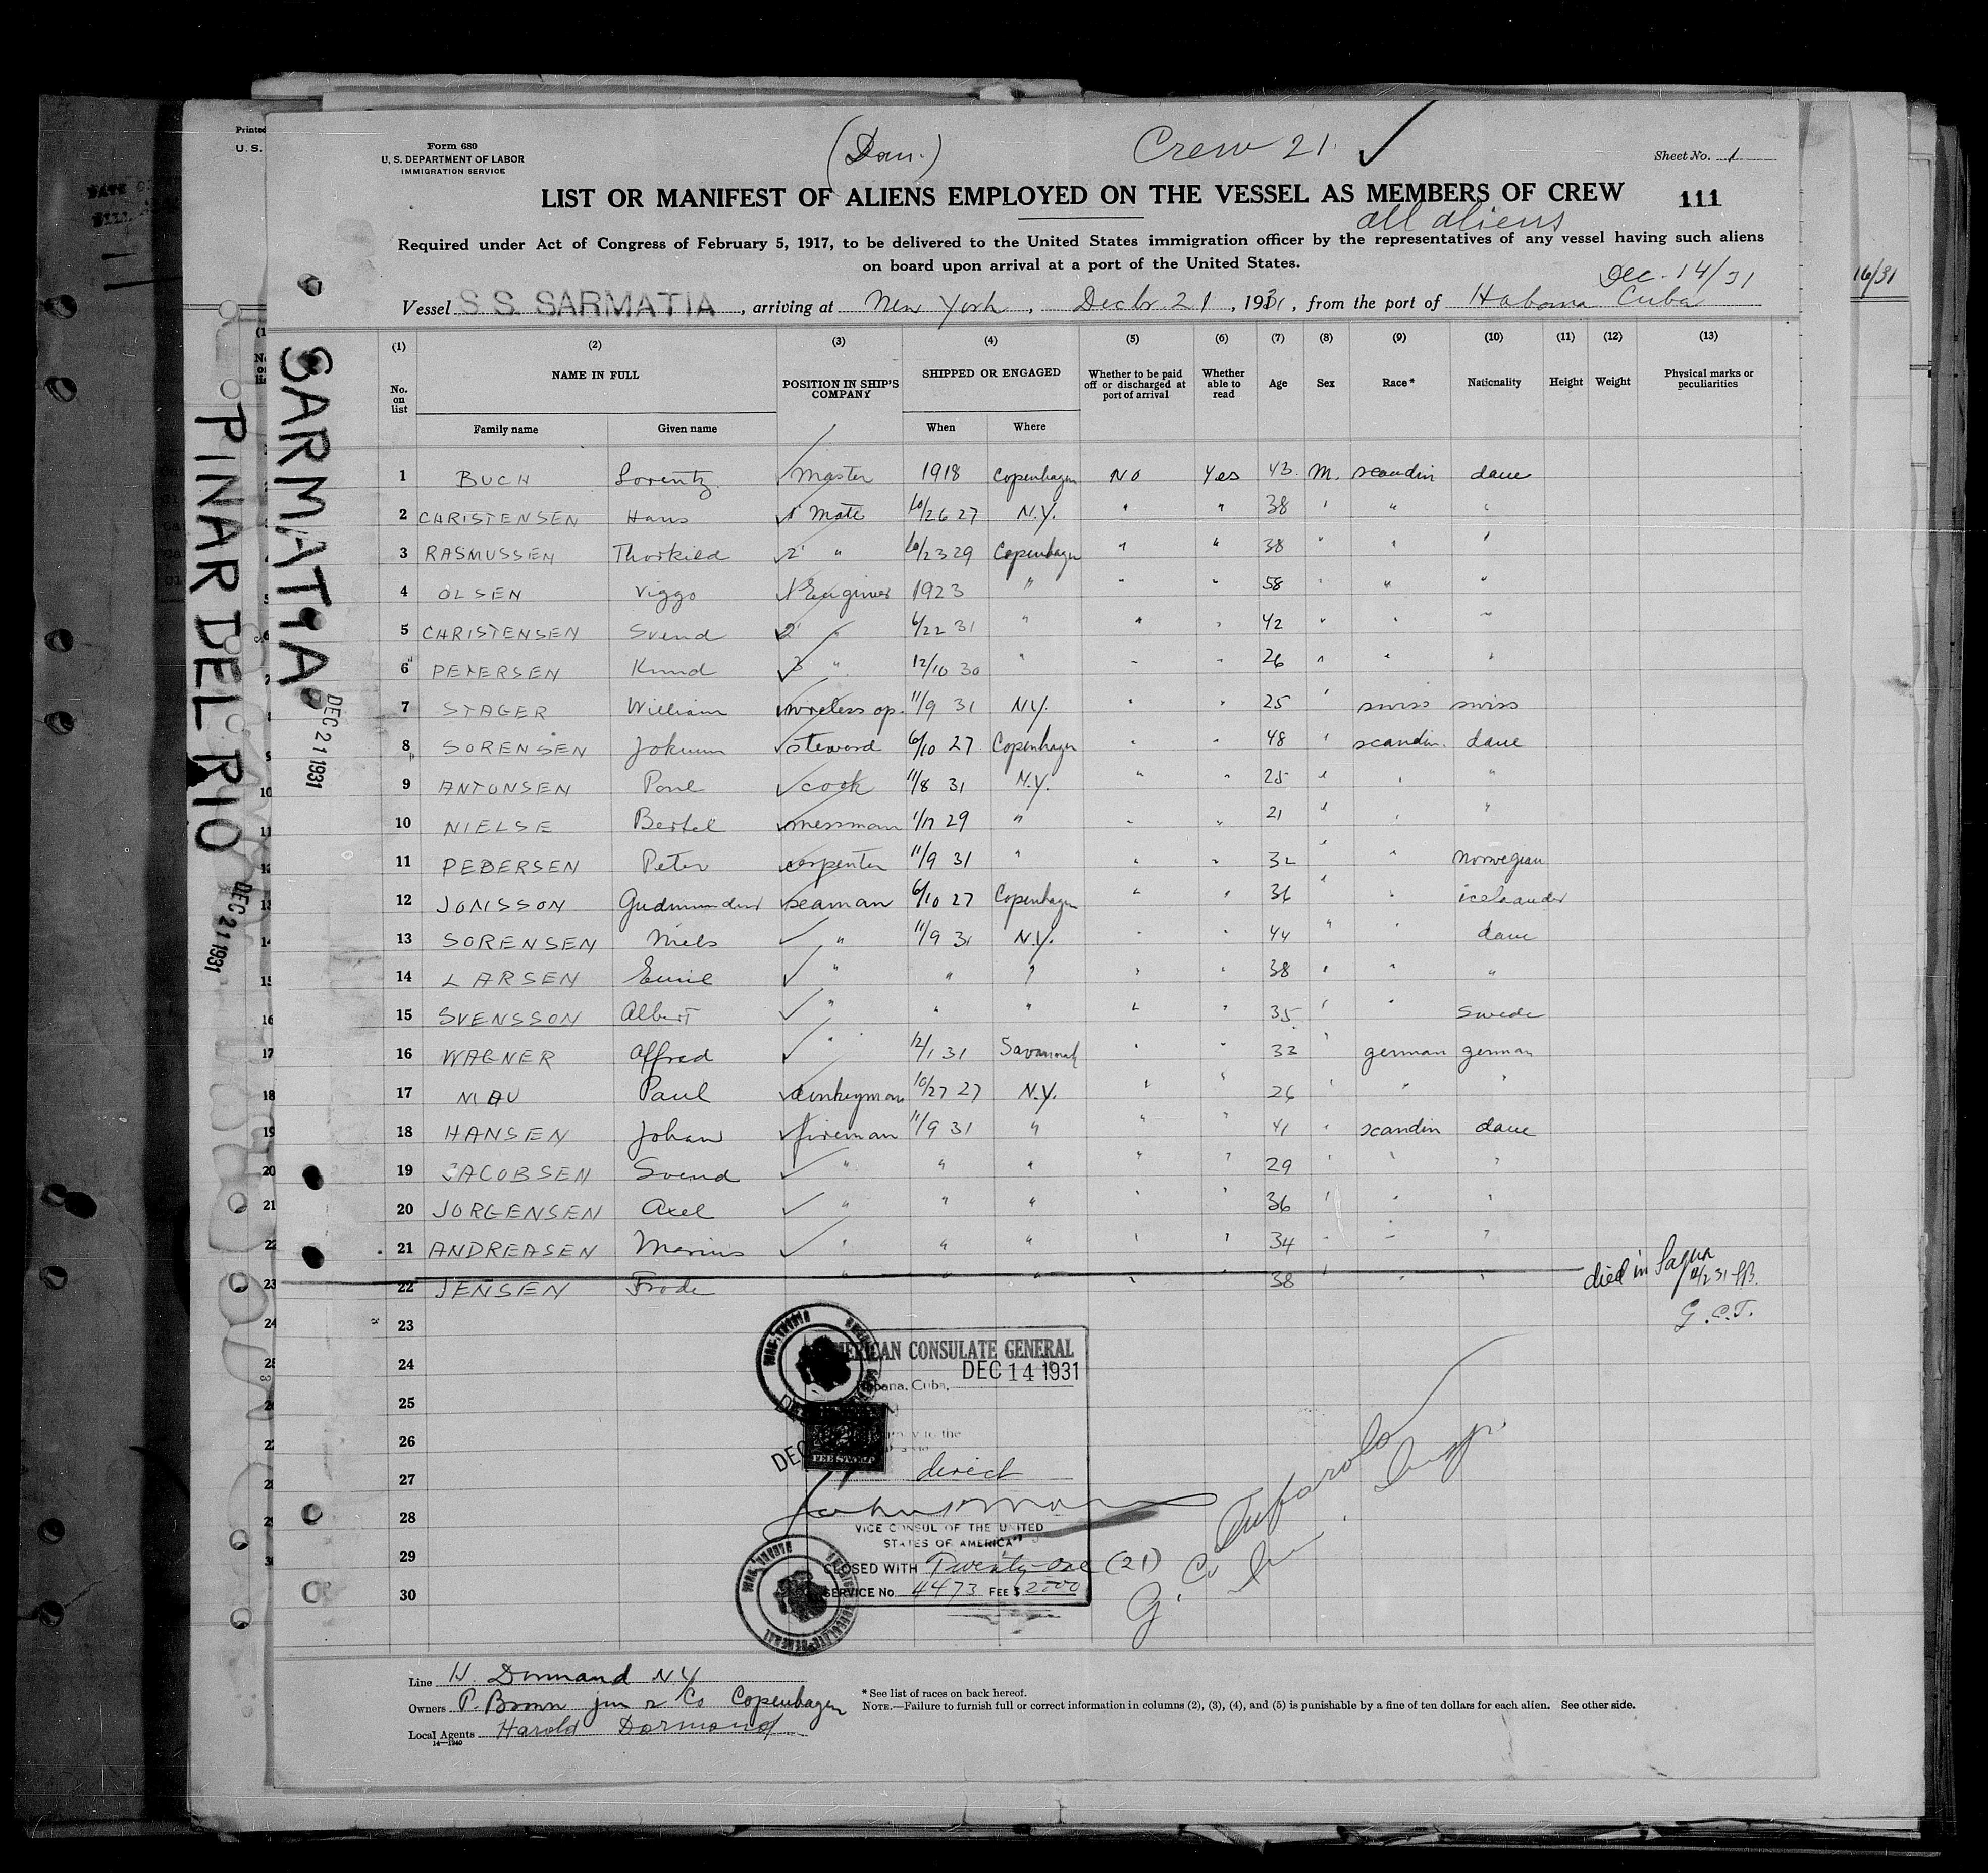 Form 680
U. S. DEPARTMENT OF LABOR
IMMIGRATION SERVICE
(Dan.)
Crew 21
Sheet No. 1
LIST OR MANIFEST OF ALIENS EMPLOYED ON THE VESSEL AS MEMBERS OF CREW
111
all aliens
Required under Act of Congress of February 5, 1917, to be delivered to the United States immigration officer by the representatives of any vessel having such aliens
on board upon arrival at a port of the United States.
Dec. 14/31
Vessel S.S. SARMATIA, arriving at New York, Decbr. 21, 1931, from the port of Habana Cuba
(1) (2) (3) (4) (5) (6) (7) (8) (9) (10) (11) (12) (13)
No. on list NAME IN FULL POSITION IN SHIP'S COMPANY SHIPPED OR ENGAGED Whether to be paid off or discharged at port of arrival Whether able to read Age Sex Race* Nationality Height Weight Physical marks or peculiarities
Family name Given name When Where
1 BUCH Lorentz Master 1918 Copenhagen NO Yes 43 M. scandin dane
2 CHRISTENSEN Hans 1 Mate 10/26 27 N.Y. " " 38 " " "
3 RASMUSSEN Thorkild 2 " 10/23 29 Copenhagen " " 38 " " "
4 OLSEN Viggo 1 Enginer 1923 " " " 58 " " "
5 CHRISTENSEN Svend 2 " 6/22 31 " " " 42 " " "
6 PETERSEN Knud 3 " 12/10 30 " " " 26 " " "
7 STAGER William wireless op. 11/9 31 N.Y. " " 25 " swiss swiss
8 SORENSEN Jokum steward 6/10 27 Copenhagen " " 48 " scandin. dane
9 ANTONSEN Poul cook 11/8 31 N.Y. " " 25 " " "
10 NIELSE Bertel messman 1/17 29 " " " 21 " " "
11 PEDERSEN Peter carpenter 11/9 31 " " " 32 " " norwegian
12 JONSSON Gudmundur seaman 6/10 27 Copenhagen " " 36 " " icelander
13 SORENSEN Niels " 11/9 31 N.Y. " " 44 " " dane
14 LARSEN Emil " " " " " 38 " " "
15 SVENSSON Albert " " " " " 35 " " Swede
16 WAGNER Alfred " 12/1 31 Savannah " " 33 " german german
17 NIAU Paul donkeyman 10/27 27 N.Y. " " 26 " " "
18 HANSEN Johan fireman 11/9 31 " " " 41 " scandin dane
19 JACOBSEN Svend " " " " " 29 " " "
20 JORGENSEN Axel " " " " " 36 " " "
21 ANDREASEN Marius " " " " " 34 " " "
22 JENSEN Frode " " " " " 38 " " " died in Sagua
G.C.T.
23
24
25
26
27
28
29
30
AMERICAN CONSULATE GENERAL
DEC 14 1931
Habana, Cuba,
direct
VICE CONSUL OF THE UNITED
STATES OF AMERICA
CLOSED WITH Twenty-one (21)
SERVICE No. 4473 FEE $ 2.00
FEE STAMP
Line H. Dormand NY
Owners P. Brown jun & Co Copenhagen
Local Agents Harold Dormand
14—1240
* See list of races on back hereof.
NOTE.—Failure to furnish full or correct information in columns (2), (3), (4), and (5) is punishable by a fine of ten dollars for each alien. See other side.
SARMATIA
DEC 21 1931
PINAR DEL RIO
DEC 21 1931
Printed
U. S.
16/31